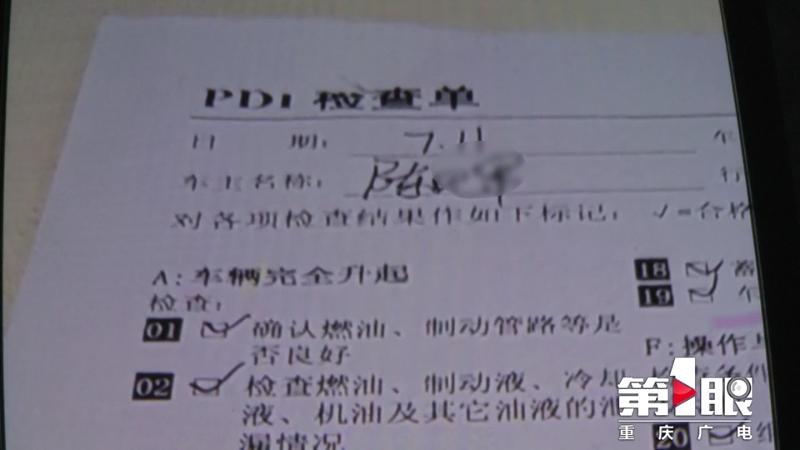 PDI 检查单
日 期： 7.11
车主名称： 陈
对各项检查结果作如下标记： √=合格
A：车辆完全升起
检查：
01 确认燃油、制动管路等是
否良好
02 检查燃油、制动液、冷却
液、机油及其它油液的泄
漏情况
18
19
F：操作
20
第1眼
重庆广电